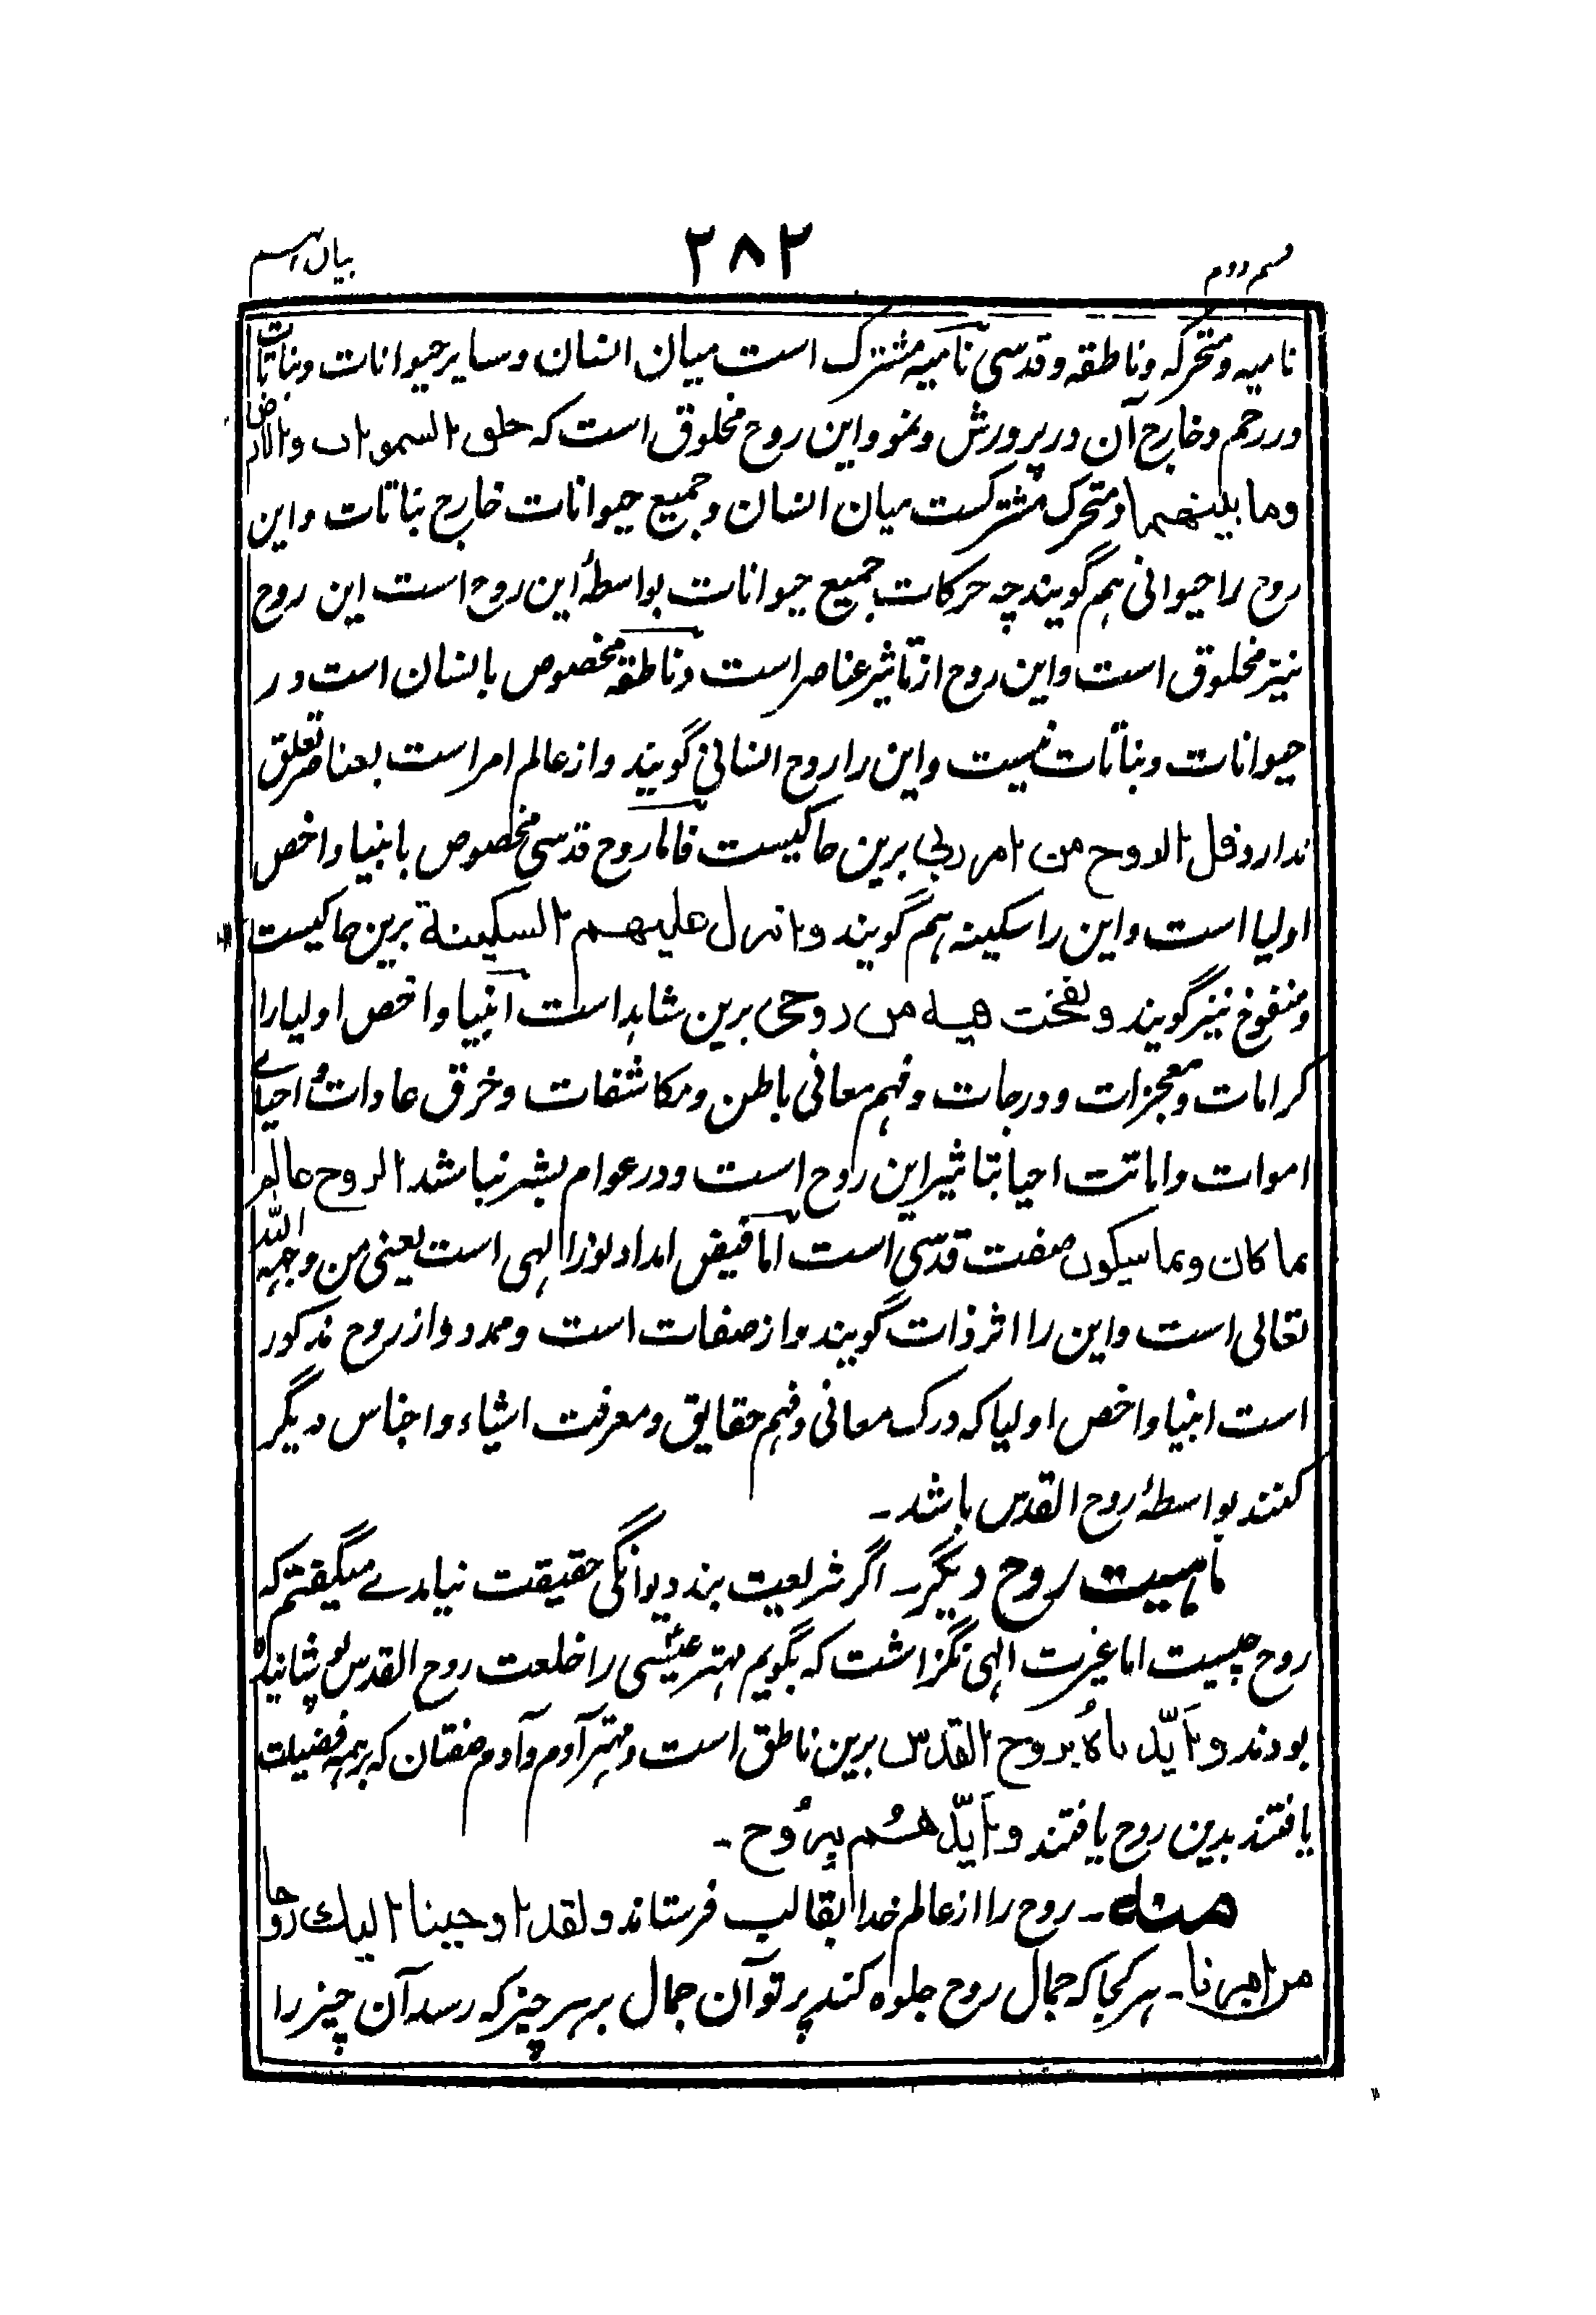 قسم دوم
۲۸۲
بیان اسم
نامیه و متحرکه و ناطقه و قدسی نامیه مشترک است میان انسان و سایر حیوانات و نباتات
در رحم و خارج آن در پرورش و نمو و این روح مخلوق است که خلق السموات والارض
وما بینهما و متحرک مشترکست میان انسان و جمیع حیوانات خارج نباتات و این
روح را حیوانی هم گویند چه حرکات جمیع حیوانات بواسطهٔ این روح است این روح
نیز مخلوق است و این روح از تاثیر عناصر است و ناطقه مخصوص بانسان است در
حیوانات و نباتات نیست و این را روح انسانی گویند و از عالم امر است بعناصر تعلق
ندارد قل الروح من امر ربی برین حاکیست فاما روح قدسی مخصوص بانبیا و اخص
اولیا است و این را سکینه هم گویند وانزل علیهم السکینة برین حاکیست
و منفوخ نیز گویند ونفخت فیه من روحی برین شاهد است انبیا و اخص اولیا را
کرامات و معجزات و درجات و فهم معانی باطن و مکاشفات و خرق عادات و احیاے
اموات و اماتت احیا بتاثیر این روح است و در عوام بشر نباشد الروح عالم
بما کان وبما سیکون صفت قدسی است اما فیض امداد نور الهی است یعنی من وجه الله
تعالی است و این را اثر ذات گویند و از صفات است و ممدو و از روح مذکور
است انبیا و اخص اولیا که درک معانی و فهم حقایق و معرفت اشیاء و اجناس دیگر
کنند بواسطهٔ روح القدس باشد۔
ماہیت روح دیگر۔ اگر شریعت بند دیوانگی حقیقت نیامدے میگفتم که
روح چیست اما غیرت الهی نگزاشت که بگویم مهتر عیسیٰؑ را خلعت روح القدس پوشانیده
بودند وایّدناهُ بروح القدس برین ناطق است و مهتر آدم و آدم صفتان که برهمه فضیلت
یافتند بدین روح یافتند وایّدهُم بِرُوح۔
منه۔ روح را از عالم خدا بقالب فرستاند ولقد اوحینا الیك روحا
من امرنا۔ هر کجا که جمال روح جلوه کند پرتو آن جمال بر هر چیز که رسد آن چیز را